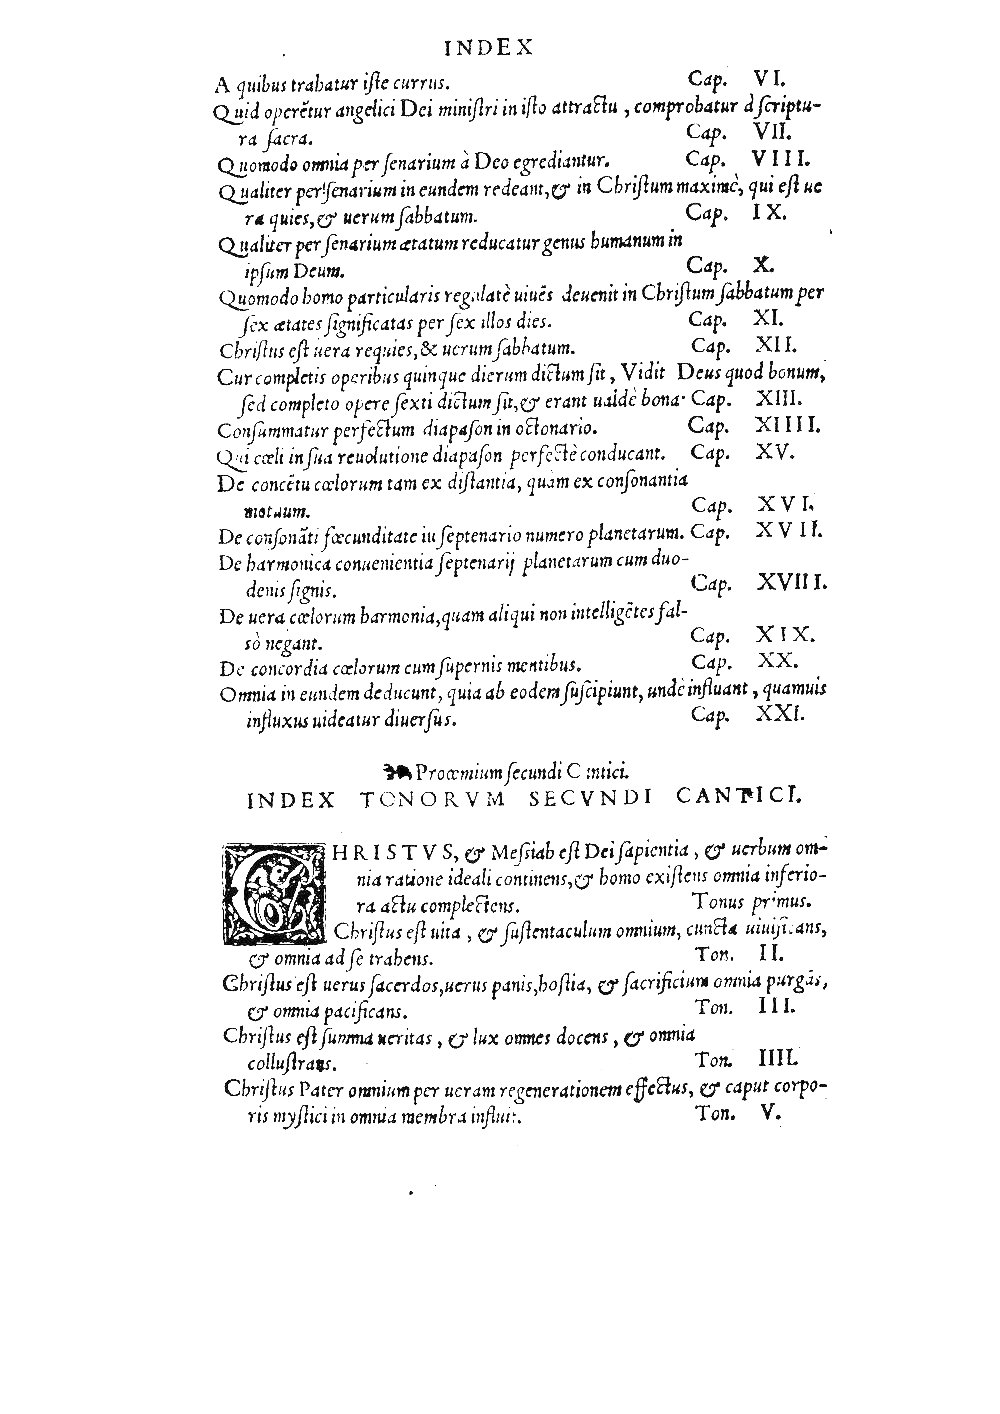 INDEX
A quibus trahatur iſte currus. Cap. VI.
Quid operẽtur angelici Dei miniſtri in iſto attractu, comprobatur à ſcriptu-
ra ſacra. Cap. VII.
Quomodo omnia per ſenarium à Deo egrediantur. Cap. VIII.
Qualiter per ſenarium in eundem redeant, & in Chriſtum maximè, qui eſt ue
ra quies, & uerum ſabbatum. Cap. IX.
Qualiter per ſenarium ætatum reducatur genus humanum in
ipſum Deum. Cap. X.
Quomodo homo particularis regulatè uiuẽs deuenit in Chriſtum ſabbatum per
ſex ætates ſignificatas per ſex illos dies. Cap. XI.
Chriſtus eſt uera requies, & uerum ſabbatum. Cap. XII.
Cur completis operibus quinque dierum dictum ſit, Vidit Deus quod bonum,
ſed completo opere ſexti dictum ſit, & erant ualdè bona. Cap. XIII.
Conſummatur perfectum diapaſon in octonario. Cap. XIIII.
Qui cœli in ſua reuolutione diapaſon perfectè conducant. Cap. XV.
De concẽtu cœlorum tam ex diſtantia, quàm ex conſonantia
motuum. Cap. XVI.
De conſonãti fœcunditate in ſeptenario numero planetarum. Cap. XVII.
De harmonica conuenientia ſeptenarij planetarum cum duo-
denis ſignis. Cap. XVIII.
De uera cœlorum harmonia, quam aliqui non intelligẽtes fal-
sò negant. Cap. XIX.
De concordia cœlorum cum ſupernis mentibus. Cap. XX.
Omnia in eundem deducunt, quia ab eodem ſuſcipiunt, undè influant, quamuis
influxus uideatur diuerſus. Cap. XXI.
Proœmium ſecundi Cantici.
INDEX TONORVM SECVNDI CANTICI.
CHRISTVS, & Meſsiah eſt Dei ſapientia, & uerbum om-
nia ratione ideali continens, & homo exiſtens omnia inferio-
ra actu complectens. Tonus primus.
Chriſtus eſt uita, & ſuſtentaculum omnium, cuncta uiuificans,
& omnia ad ſe trahens. Ton. II.
Chriſtus eſt uerus ſacerdos, uerus panis, hoſtia, & ſacrificium omnia purgãs,
& omnia pacificans. Ton. III.
Chriſtus eſt ſumma ueritas, & lux omnes docens, & omnia
colluſtrans. Ton. IIII.
Chriſtus Pater omnium per ueram regenerationem effectus, & caput corpo-
ris myſtici in omnia membra influit. Ton. V.